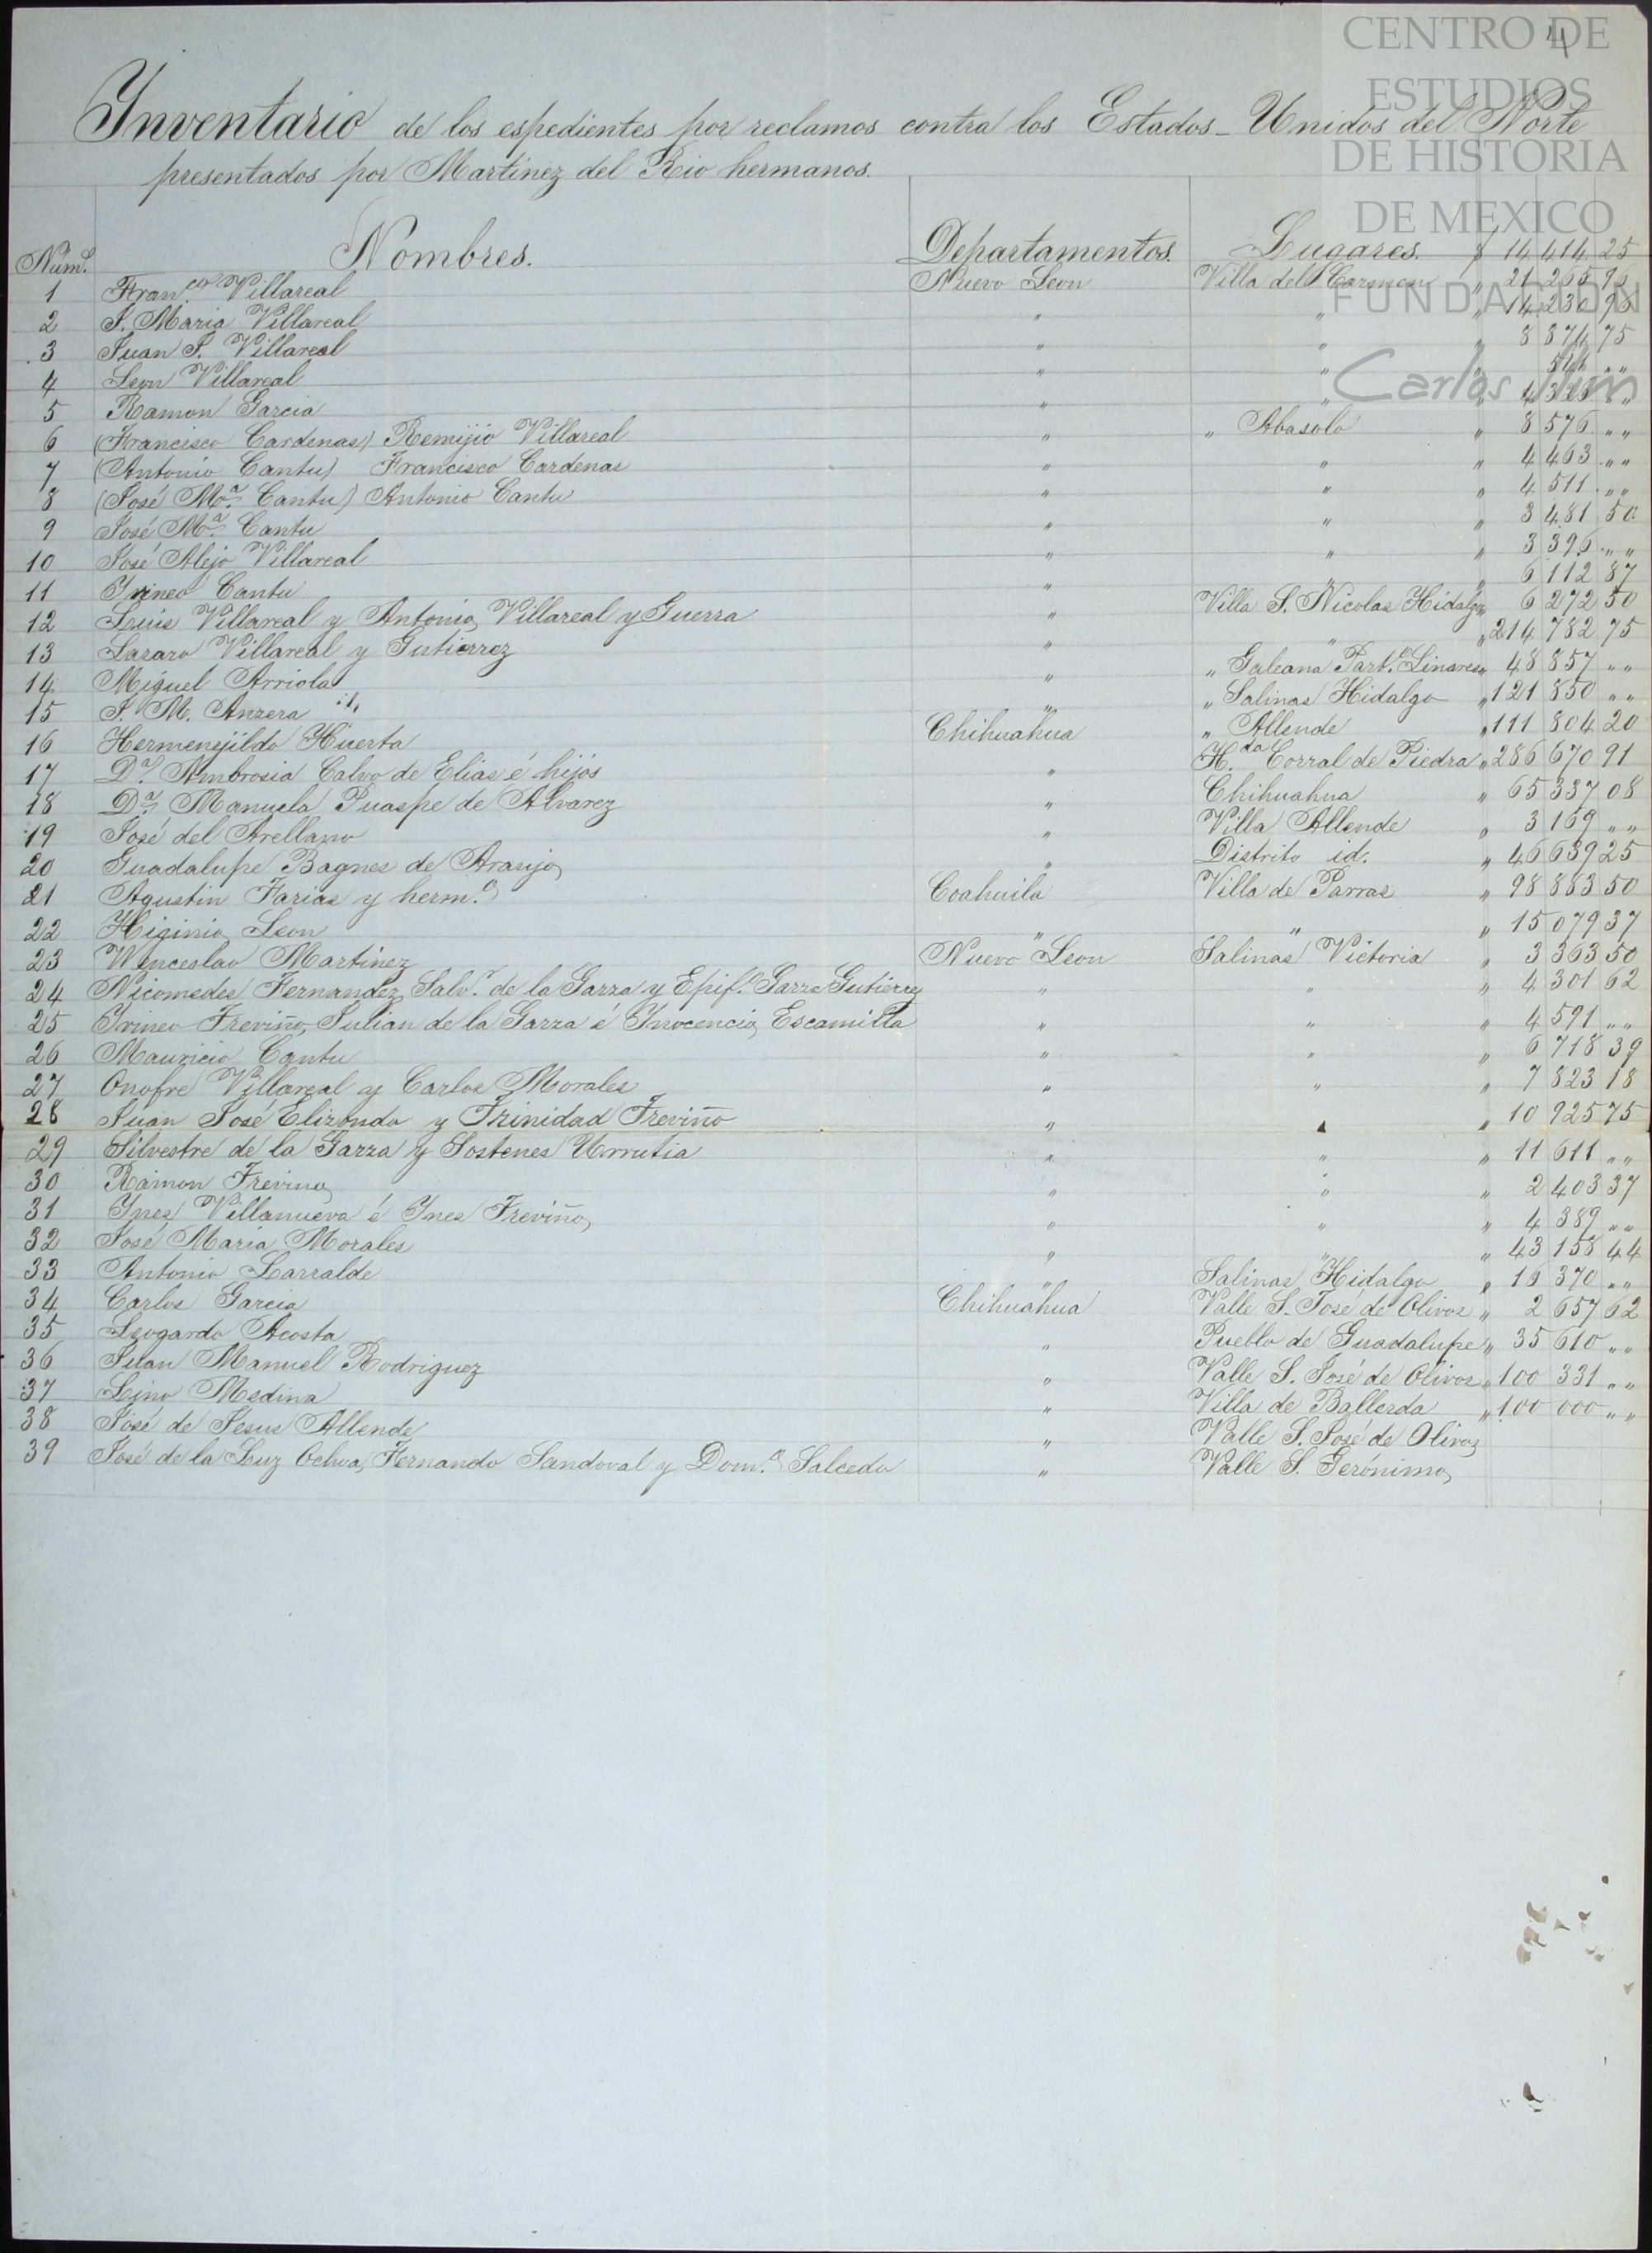 4
CENTRO DE
ESTUDIOS
DE HISTORIA
DE MEXICO
FUNDACION
Carlos Slim
Inventario de los espedientes por reclamos contra los Estados-Unidos del Norte
presentados por Martinez del Rio hermanos.
Núm.º Nombres. Departamentos. Lugares. $ 14 414 25
1 Fran.co Villareal Nuevo Leon Villa del Carmen " 21 265 93
2 J. Maria Villareal " " " 14 230 98
3 Juan J. Villareal " " " 8 874 75
4 Leon Villareal " " " 544 ""
5 Ramon Garcia " " " 4 326 ""
6 (Francisco Cardenas) Remijio Villareal " " Abasolo " 8 576 ""
7 (Antonio Cantu) Francisco Cardenas " " " 4 463 ""
8 (José M.a Cantu) Antonio Cantu " " " 4 511 ""
9 José M.a Cantu " " " 3 481 50
10 José Alejo Villareal " " " 3 396 ""
11 Irineo Cantu " " " 6 112 87
12 Luis Villareal y Antonio Villareal y Guerra " Villa S. Nicolas Hidalgo " 6 272 50
13 Lazaro Villareal y Gutierrez " " " 214 782 75
14 Miguel Arriola " " Galeana Part.o Linares " 48 857 ""
15 J. M. Anzera " " Salinas Hidalgo " 121 850 ""
16 Hermenejildo Huerta Chihuahua " Allende " 111 804 20
17 D.a Ambrosia Calvo de Elias é hijos " H.da Corral de Piedra " 286 670 91
18 D.a Manuela Puaspe de Alvarez " Chihuahua " 65 337 08
19 José del Arellano " Villa Allende " 3 169 ""
20 Guadalupe Bagnes de Araujo " Distrito id. " 46 639 25
21 Agustin Farias y herm.o Coahuila Villa de Parras " 98 883 50
22 Higinio Leon " " " 15 079 37
23 Wenceslao Martinez Nuevo Leon Salinas Victoria " 3 363 50
24 Nicomedes Fernandez, Salv.r de la Garza y Epif.o Garza Gutierrez " " " 4 301 62
25 Irineo Treviño, Julian de la Garza é Inocencio Escamilla " " " 4 591 ""
26 Mauricio Cantu " " " 6 718 39
27 Onofre Villareal y Carlos Morales " " " 7 823 18
28 Juan José Elizondo y Trinidad Treviño " " " 10 925 75
29 Silvestre de la Garza y Sostenes Urrutia " " " 11 611 ""
30 Ramon Trevino " " " 2 403 37
31 Ynes Villanueva é Ynes Treviño " " " 4 389 ""
32 José Maria Morales " " " 43 158 44
33 Antonio Larralde " Salinas Hidalgo " 16 370 ""
34 Carlos Garcia Chihuahua Valle S. José de Olivos " 2 657 62
35 Leogardo Acosta " Pueblo de Guadalupe " 35 610 ""
36 Juan Manuel Rodriguez " Valle S. José de Olivos " 100 331 ""
37 Lino Medina " Villa de Balleza " 100 000 ""
38 José de Jesus Allende " Valle S. José de Olivos
39 José de la Luz Ochoa, Fernando Sandoval y Dom.o Salcedo " Valle S. Gerónimo